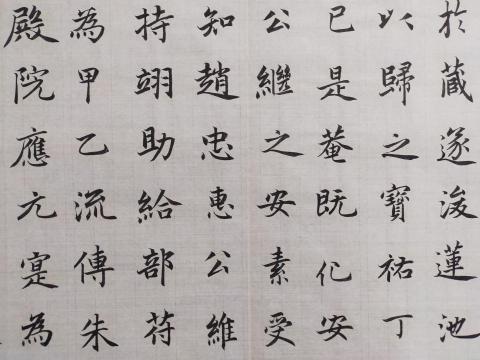 於藏遂浚蓮池
以歸之寶祐丁
巳是菴既化安
公繼之安素受
知趙忠惠公維
持翊助給部苻
為甲乙流傳朱
殿院應元寔為